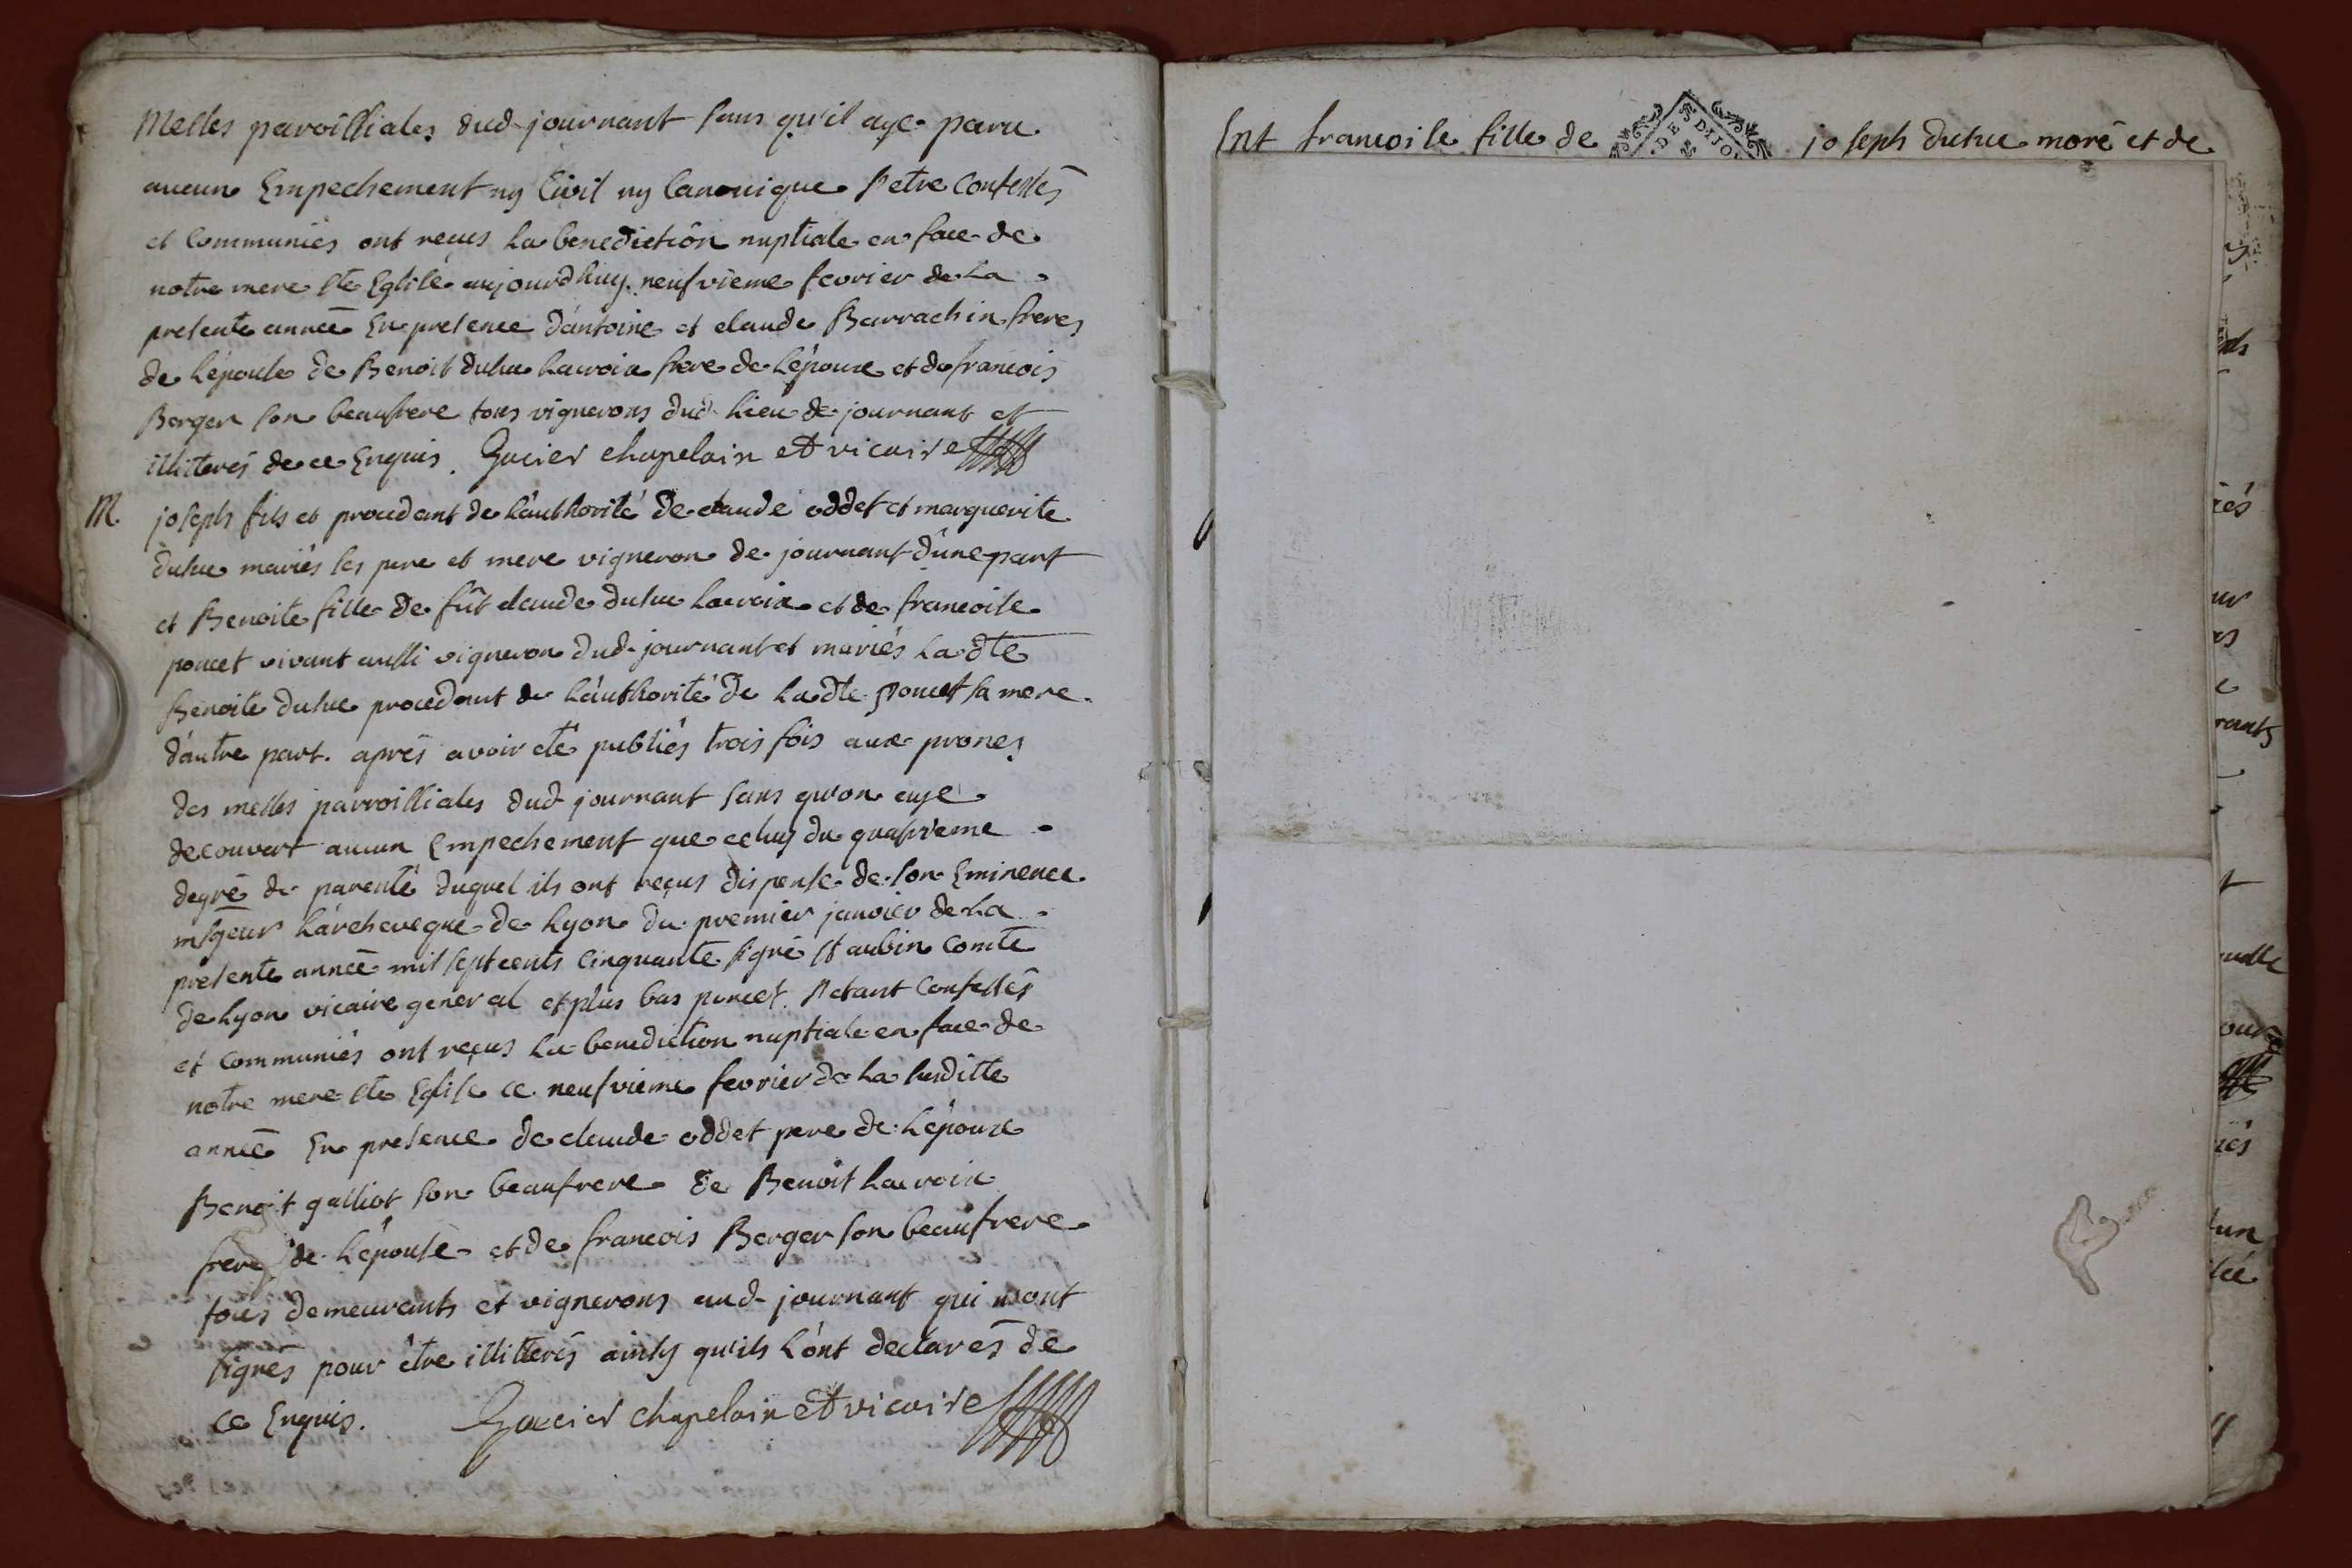 Messes paroissiales dud journant sans qu'il aye paru
aucun Empechement ny Civil ny Canonique s'etre confessés
et Communiés ont reçus la benediction nuptiale en face de
notre mere ste Eglise aujourdhuy neufvieme fevrier de la
presente année En presence d'antoine et claude Barrachin freres
de l'épouse de Benoit duluc lacroix frere de l'épouse et de francois
Berger son beaufrere tous vignerons dud lieu de journant et
illiterés de ce Enquis. Gacier chapelain et vicaire
M. joseph fils et procedant de l'authorité de claude oddet et marguerite
duluc mariés ses pere et mere vigneron de journant d'une part
et Benoite fille de fût claude duluc lacroix et de francoise
poncet vivant aussi vigneron dud journant et mariés la dte
Benoite duluc procedant de l'authorité de la dte poncet sa mere
d'autre part. aprés avoir eté publiés trois fois aux prones
des messes parroissiales dud journant sans qu'on aye
decouvert aucun Empechement que celuy du quatrieme
degré de parenté duquel ils ont reçus dispense de son Eminence
msgeur l'archeveque de Lyon du premier janvier de la
presente année mil sept cents cinquante signé st aubin comte
de Lyon vicaire general et plus bas poncet s'etant confessés
et communiés ont reçus la benediction nuptiale en face de
notre mere ste Eglise ce neufvieme fevrier de la susditte
année En presence de claude oddet pere de l'époux
Benoit galliot son beaufrere de Benoit lacroix
frere de l'épouse et de francois Berger son beaufrere
tous demeurants et vignerons aud journant qui n'ont
signés pour être illiterés ainsy qu'ils l'ont declarés de
ce Enquis. Gacier chapelain et vicaire
francoise fille de joseph duluc moré et de
DE DIJON